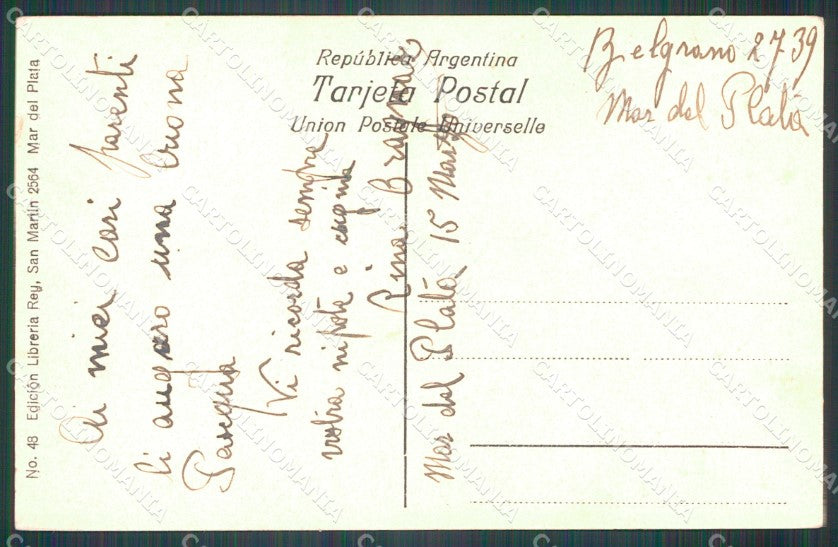 No. 48 Edición Libreria Rey, San Martin 2564 Mar del Plata
República Argentina
Tarjeta Postal
Union Postale Universelle
Belgrano 2739
Mar del Plata
Ai miei cari parenti
li auguro una buona
Pasqua
Vi ricorda sempre
vostra nipote e cugina
Rina
Mar del Plata 15 Marzo
CARTOLINOMANIA